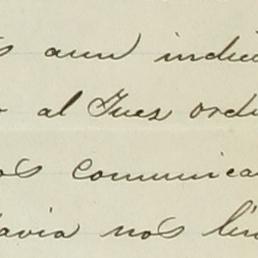 s aun indic
o al Juez ord
os comunica
avia nos lin